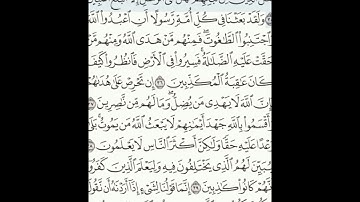 وَلَقَدْ بَعَثْنَا فِى كُلِّ أُمَّةٍ رَّسُولًا أَنِ ٱعْبُدُوا۟ ٱللَّهَ
وَٱجْتَنِبُوا۟ ٱلطَّٰغُوتَ ۖ فَمِنْهُم مَّنْ هَدَى ٱللَّهُ وَمِنْهُم مَّنْ
حَقَّتْ عَلَيْهِ ٱلضَّلَٰلَةُ ۚ فَسِيرُوا۟ فِى ٱلْأَرْضِ فَٱنظُرُوا۟ كَيْفَ
كَانَ عَٰقِبَةُ ٱلْمُكَذِّبِينَ ٣٦ إِن تَحْرِصْ عَلَىٰ هُدَىٰهُمْ
فَإِنَّ ٱللَّهَ لَا يَهْدِى مَن يُضِلُّ ۖ وَمَا لَهُم مِّن نَّٰصِرِينَ
أَقْسَمُوا۟ بِٱللَّهِ جَهْدَ أَيْمَٰنِهِمْ لَا يَبْعَثُ ٱللَّهُ مَن يَمُوتُ بَلَىٰ
وَعْدًا عَلَيْهِ حَقًّا وَلَٰكِنَّ أَكْثَرَ ٱلنَّاسِ لَا يَعْلَمُونَ
يُبَيِّنَ لَهُمُ ٱلَّذِى يَخْتَلِفُونَ فِيهِ وَلِيَعْلَمَ ٱلَّذِينَ كَفَرُوا۟
نَّهُمْ كَانُوا۟ كَٰذِبِينَ ٣٩ إِنَّمَا قَوْلُنَا لِشَىْءٍ إِذَآ أَرَدْنَٰهُ أَن نَّقُولَ